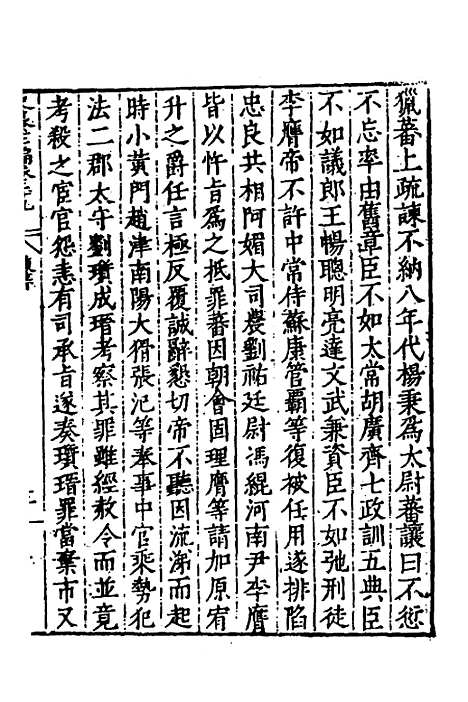 獵蕃上疏諫不納八年代楊秉爲太尉蕃讓曰不愆
不忘率由舊章臣不如太常胡廣齊七政訓五典臣
不如議郎王暢聰明亮達文武兼資臣不如弛刑徒
李膺帝不許中常侍蘇康管霸等復被任用遂排陷
忠良共相阿媚大司農劉祐廷尉馮緄河南尹李膺
皆以忤旨爲之抵罪蕃因朝會固理膺等請加原宥
升之爵任言極反覆誠辭懇切帝不聽因流涕而起
時小黃門趙津南陽大猾張汜等奉事中官乘勢犯
法二郡太守劉瓆成瑨考察其罪雖經赦令而並竟
考殺之宦官怨恚有司承旨遂奏瓆瑨罪當棄市又